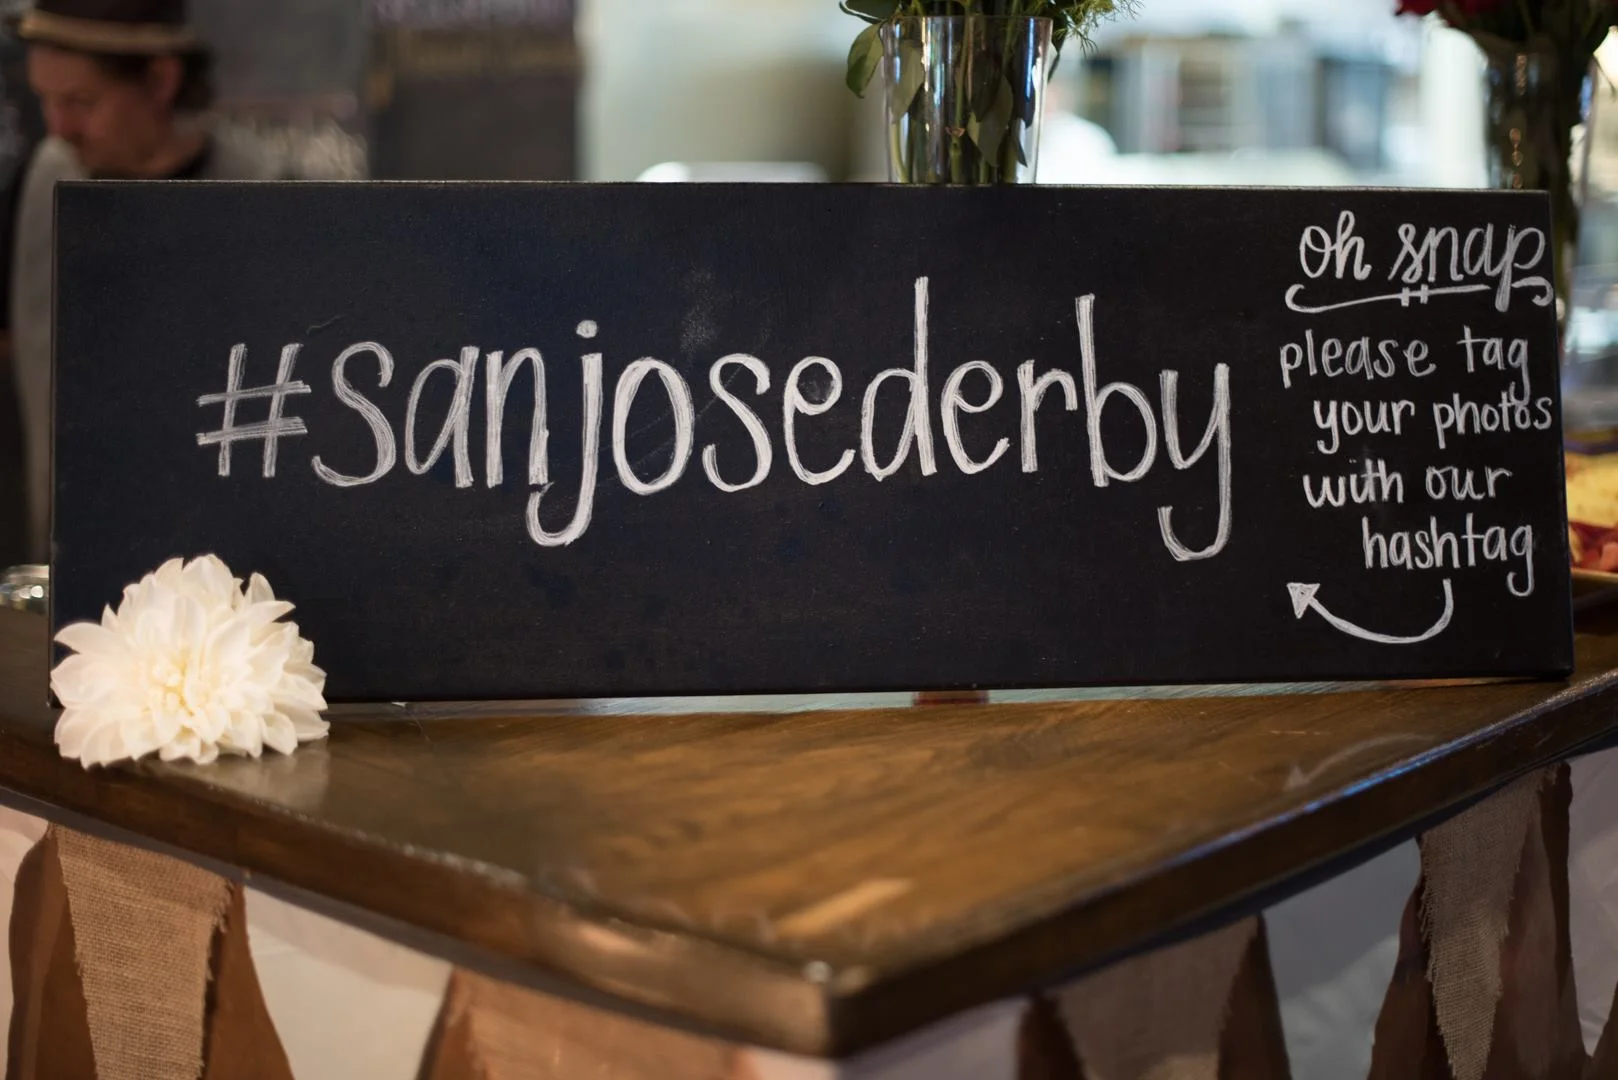 #sanjosederby
oh snap
please tag
your photos
with our
hashtag